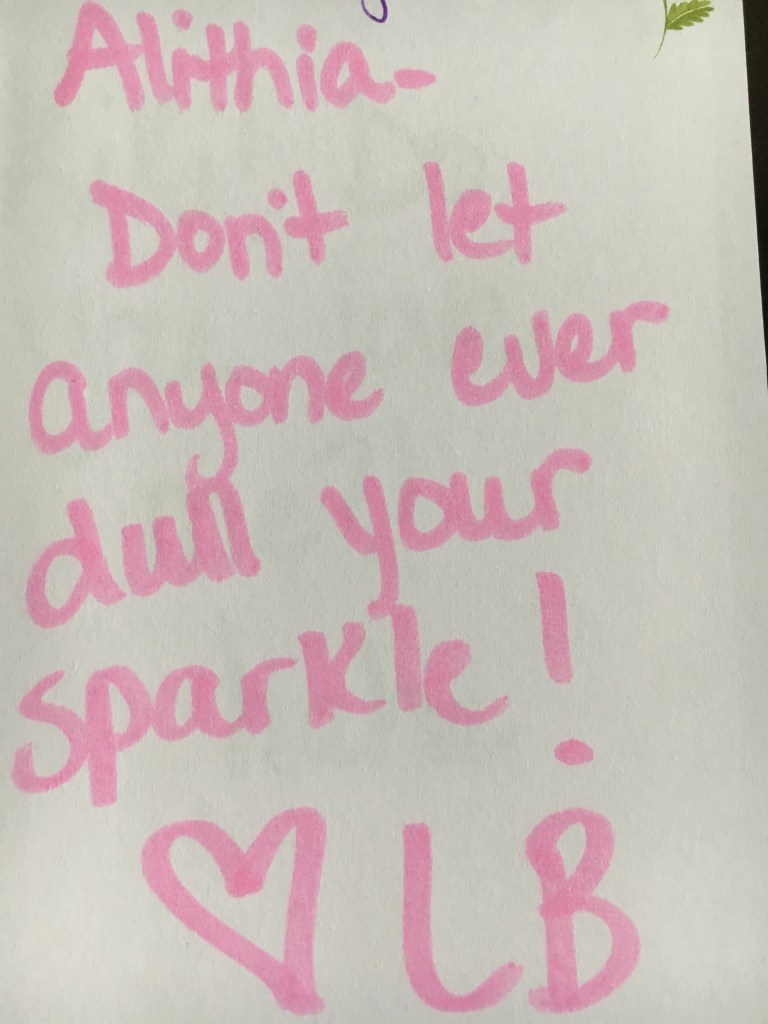 Alithia-
Don't let
anyone ever
dull your
sparkle!
♡ LB